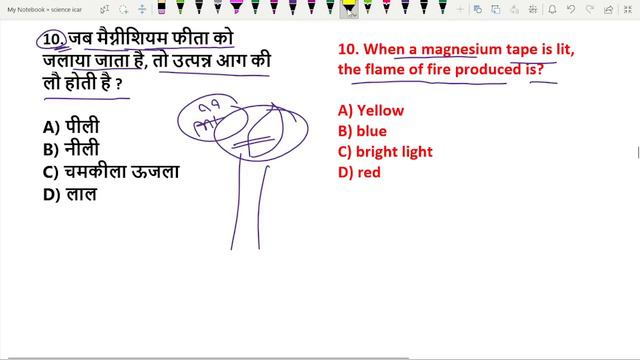 My Notebook » science icar
10. जब मैग्नीशियम फीता को
जलाया जाता है, तो उत्पन्न आग की
लौ होती है ?
A) पीली
B) नीली
C) चमकीला ऊजला
D) लाल
10. When a magnesium tape is lit,
the flame of fire produced is?
A) Yellow
B) blue
C) bright light
D) red